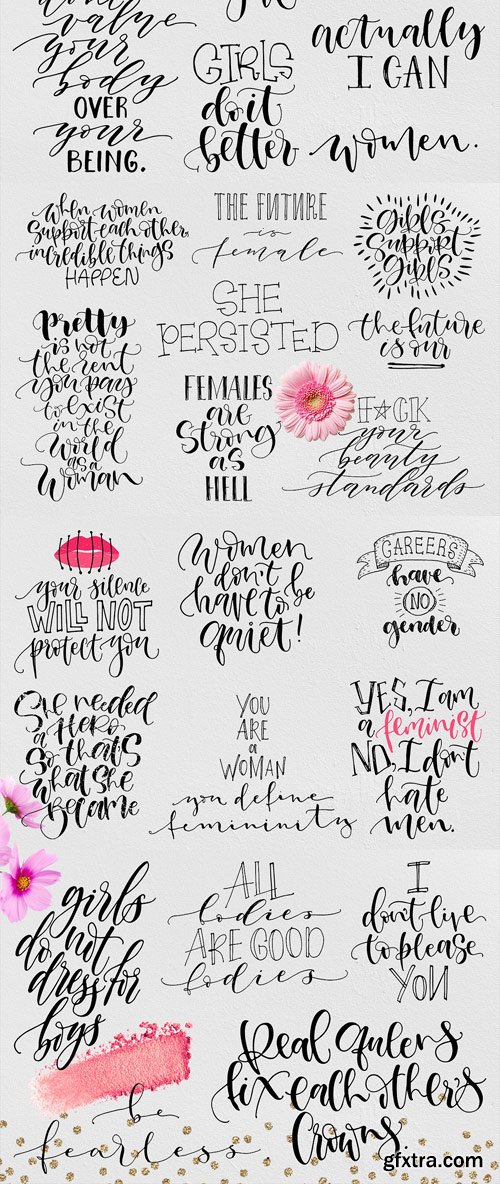 don't
value
your
body
OVER
your
BEING.
GIRLS
do it
better
actually
I CAN
women.
When women
support each other,
incredible things
HAPPEN
THE FUTURE
is
female
girls
support
girls
Pretty
is not
the rent
you pay
to exist
in the
world
as a
woman
SHE
PERSISTED
the future
is our
FEMALES
are
strong
as
HELL
F☆CK
your
beauty
standards
your silence
WILL NOT
protect you
Women
don't
have to be
quiet!
CAREERS
have
NO
gender
She needed
a Hero,
so that's
what she
Became
YOU
ARE
a
WOMAN
you define
femininity
YES, I am
a feminist
NO, I don't
hate
men.
girls
do not
dress for
boys
ALL
bodies
ARE GOOD
bodies
I
don't live
to please
YOU
be
fearless.
Real Queens
fix each other's
Crowns.
gfxtra.com